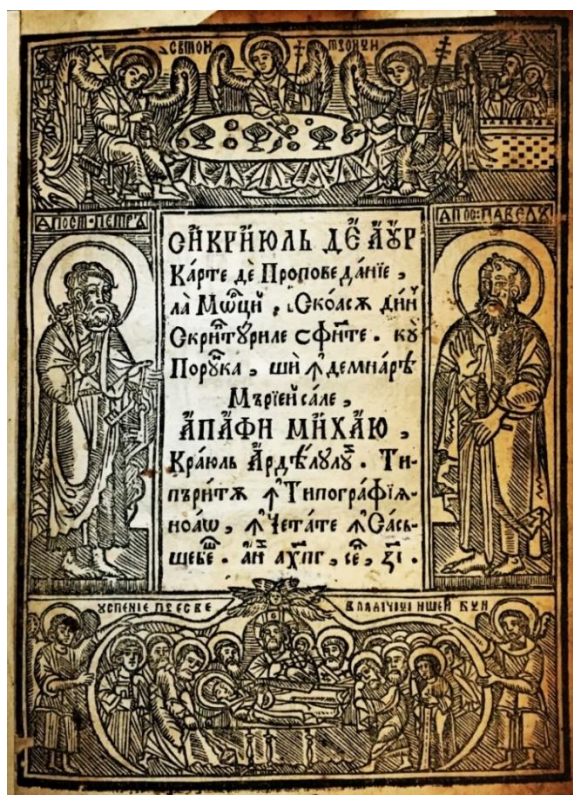 СВТОИ ТРОИЦИ
АПОСТ·ПЕТРꙋ
АПОС:ПАВЕЛꙋ
СИ҆КРИ҆ЮЛЬ ДЕ҆ А҆ꙋ҆Р
Ка́рте дѐ Проповеда́нїе,
ла̀ Мѡ҆рци. Ско́лсѫ ди́н
Скриптꙋ́риле сфи́нте. кꙋ̀
Порꙋ́нка, шѝ ꙟ҆демнарѣ̀
Мърїе́й са́ле,
А҆ПА҆ФИ МИ҆ХА҆Ю,
Кра́юль А҆рдѣ́лꙋлꙋй. Ти-
пъри́тѫ ꙟ҆ Типогра́фїꙗ
ноа́ѡ, ꙟ҆ Чета́те ꙟ҆ Са́съ-
шебе́ш. а҆н҃ ҂а҃хп҃г, се҃, з҃і.
ꙋСПЕНІЕ ПРЕСВЕ
ВЛАДІЧІЦИ НШЕЙ БЦИ